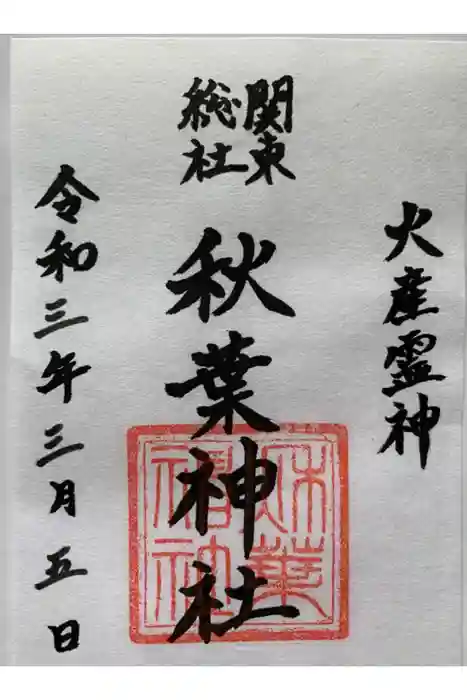 火産霊神
関東
総社
秋葉神社
令和三年三月五日